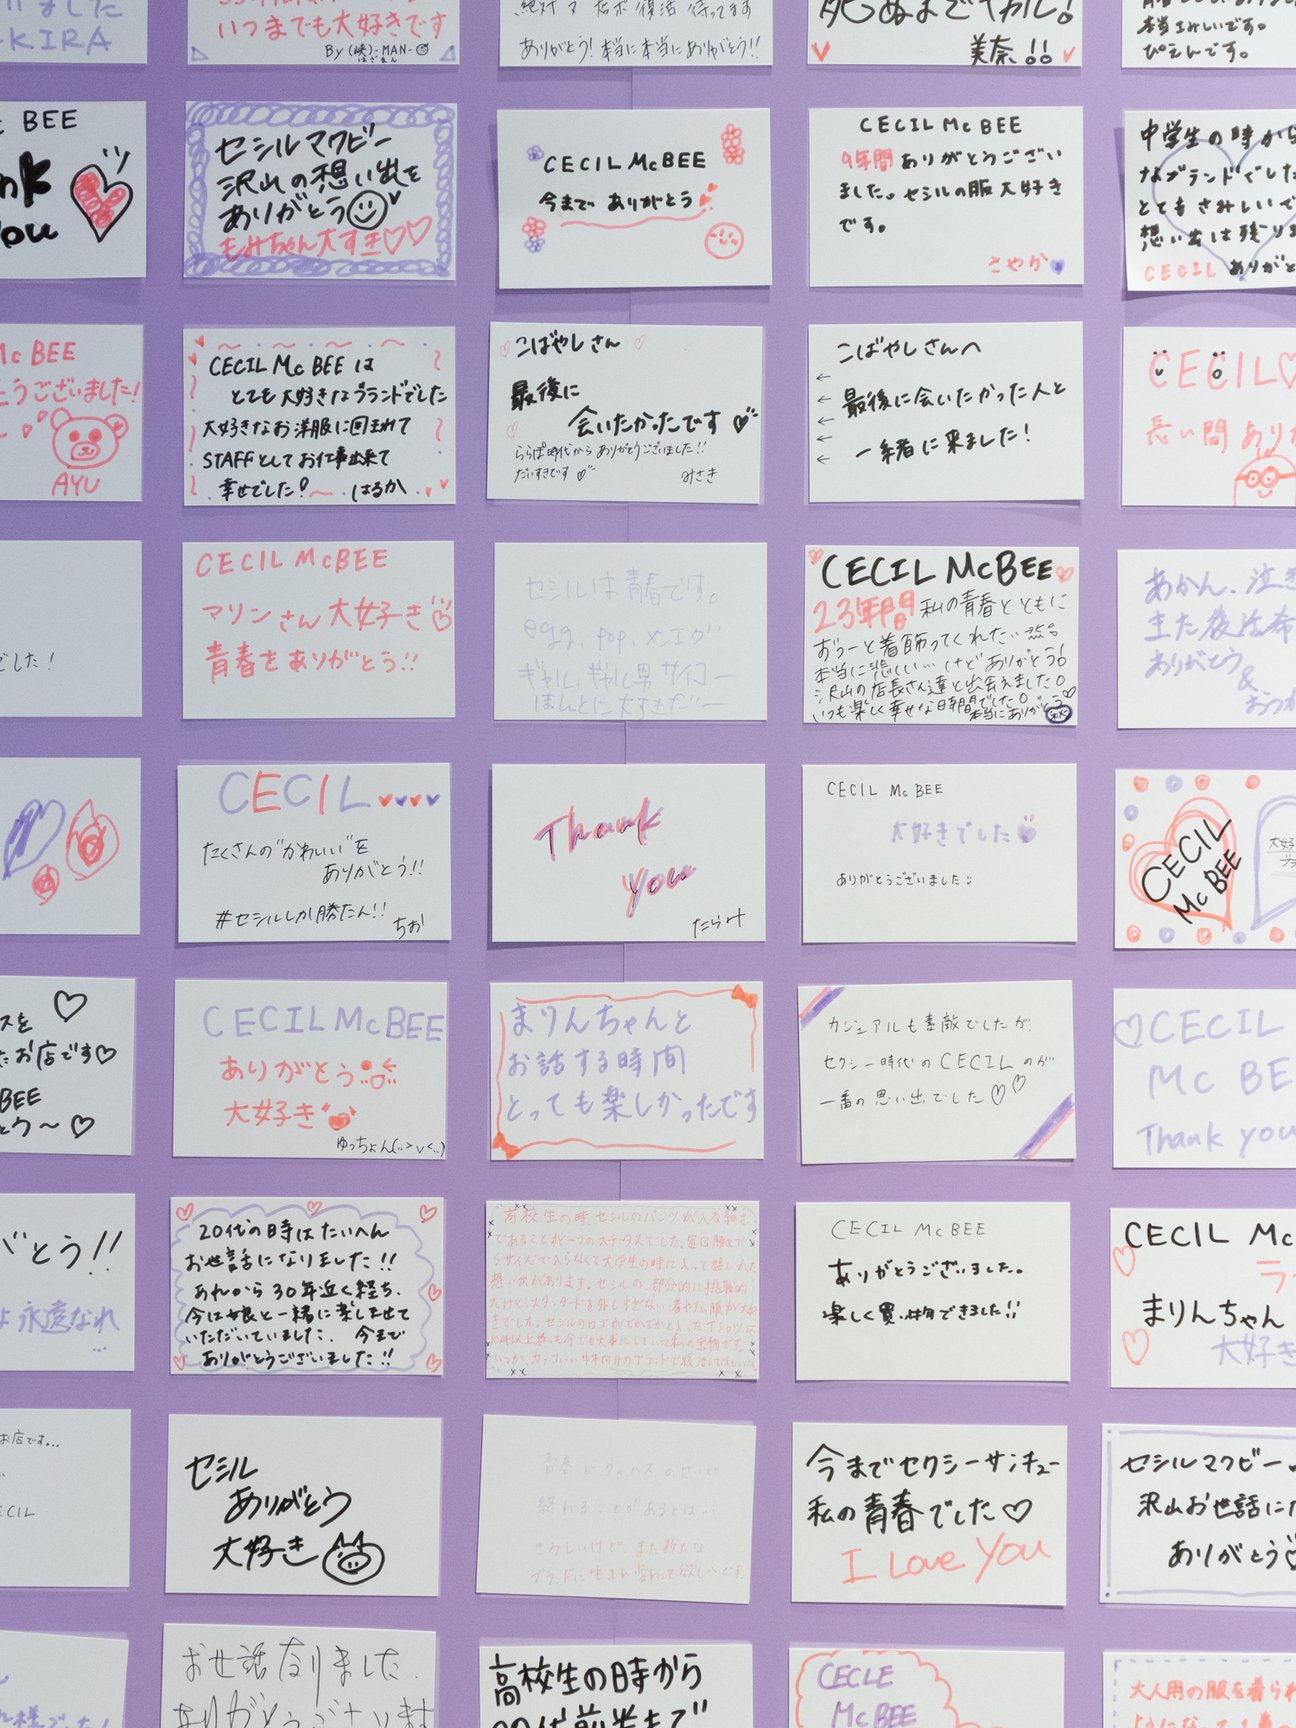 いつまでも大好きです
By (峽)-MAN-
ありがとう！本当に本当にありがとう!!
死ぬまでギャル！
美奈!!
本当エみしいです。
ぴえんです。
KIRA
BEE
you
セシルマクビー
沢山の想い出を
ありがとう
もみちゃん大すき♡♡
CECIL McBEE
今まで ありがとう
CECIL Mc BEE
9年間ありがとうござい
ました。セシルの服大好き
です。
さやか
中学生の時から
なブランドでした
とてもさみしいで
想い出は残りま
CECIL ありがと
Mc BEE
とうございました!
AYU
CECIL Mc BEE は
とても大好きなブランドでした
大好きなお洋服に囲まれて
STAFFとしてお仕事出来て
幸せでした! はるか
♡こばやしさん♡
最後に
会いたかったです♡
ららぽ時代からありがとうございました!!
だいすきです♡ みさき
こばやしさんへ
← 最後に会いたかった人と
一緒に来ました！
CECIL♡
長い間 あり
でした！
CECIL McBEE
マリンさん大好き♡
青春をありがとう!!
セシルは青春です。
egg, pop, メンエグ
ギャル, ギャル男 サイコー
ほんとに大すきだー
CECIL McBEE
23年間 私の青春とともに
ずぅーと着飾ってくれた
本当に悲しい…けどありがとう!
沢山の店長さん達と出会えました!
いつも楽しく幸せな時間でした!
本当にありがとう♡
あかん、泣き
また復活希
ありがとう
&
おつか
CECIL
たくさんの"かわいい"を
ありがとう!!
#セシルしか勝たん!! ちお
Thank
you
たらみ
CECIL Mc BEE
大好きでした
ありがとうございました:
CECIL
Mc BEE
大好
お店です♡
BEE
とう〜♡
CECIL McBEE
ありがとう
大好き
ゆっちょん
まりんちゃんと
お話する時間
とっても楽しかったです
カジュアルも素敵でしたが、
セクシー時代のCECILのが
一番の思い出でした♡♡
♡CECIL
Mc BE
Thank you
がとう!!
永遠なれ
20代の時はたいへん
お世話になりました!!
あれから30年近く経ち、
今は娘と一緒に楽しませて
いただいていました. 今まで
ありがとうございました!!
高校生の時、セシルのパンツが入る細さ
であることが一つのステータスでした。毎回膝まで
Sサイズで入らなくて大学生の時に入って嬉しかった
想い出があります。セシルの、部分的に挑戦的
だけど、スタンダードを外しすぎない、着やすい服が大好
きでした。セシルのロゴがでかでかと入ったTシャツは
10年以上経っても今でも大事にしていて私の宝物です。
いつか、カッコいい中年向けのブランドで復活してほしいな
CECIL McBEE
ありがとうございました。
楽しく買い物できました!!
CECIL Mc
まりんちゃん
大好き
お店です…
CECIL
セシル
ありがとう
大好き
青春がウィルスのせいで
終わることがあるとは…
さみしいけど、また新たな
ブランドに生まれ変わって欲しいです
今までセクシーサンキュー
私の青春でした♡
I Love You
セシルマクビー
沢山お世話にな
ありがとう♡
お世話なりました.
ありがとうございま
高校生の時から
CECLE
McBEE
大人用の服を着られ